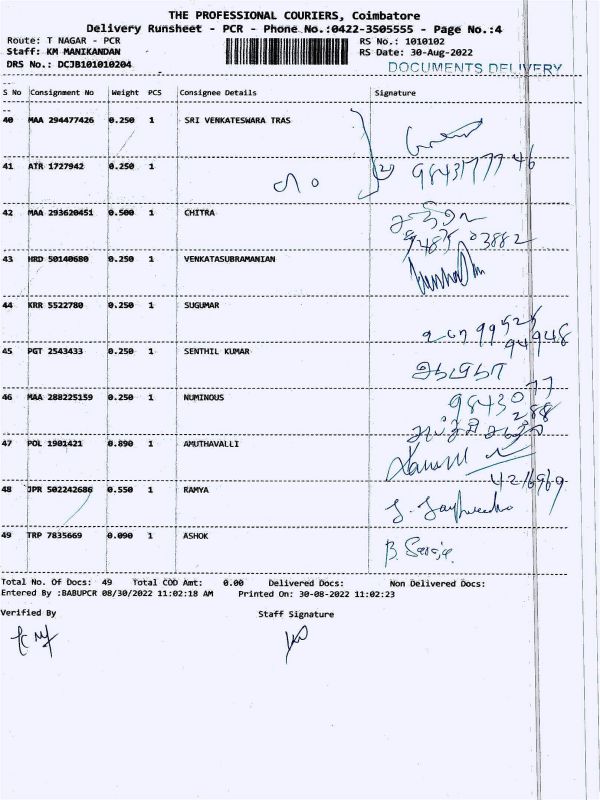 THE PROFESSIONAL COURIERS, Coimbatore
Delivery Runsheet - PCR - Phone No.:0422-3505555 - Page No.:4
Route: T NAGAR - PCR
RS No.: 1010102
Staff: KM MANIKANDAN
RS Date: 30-Aug-2022
DRS No.: DCJB101010204
DOCUMENTS DELIVERY
S No Consignment No Weight PCS Consignee Details Signature
40 MAA 294477426 0.250 1 SRI VENKATESWARA TRAS
41 ATR 1727942 0.250 1
42 MAA 293620451 0.500 1 CHITRA
43 HRD 50140680 0.250 1 VENKATASUBRAMANIAN
44 KRR 5522780 0.250 1 SUGUMAR
45 PGT 2543433 0.250 1 SENTHIL KUMAR
46 MAA 288225159 0.250 1 NUMINOUS
47 POL 1901421 0.890 1 AMUTHAVALLI
48 JPR 502242686 0.550 1 RAMYA
49 TRP 7835669 0.090 1 ASHOK
B. Saroja
Total No. Of Docs: 49 Total COD Amt: 0.00 Delivered Docs: Non Delivered Docs:
Entered By :BABUPCR 08/30/2022 11:02:18 AM Printed On: 30-08-2022 11:02:23
Verified By Staff Signature